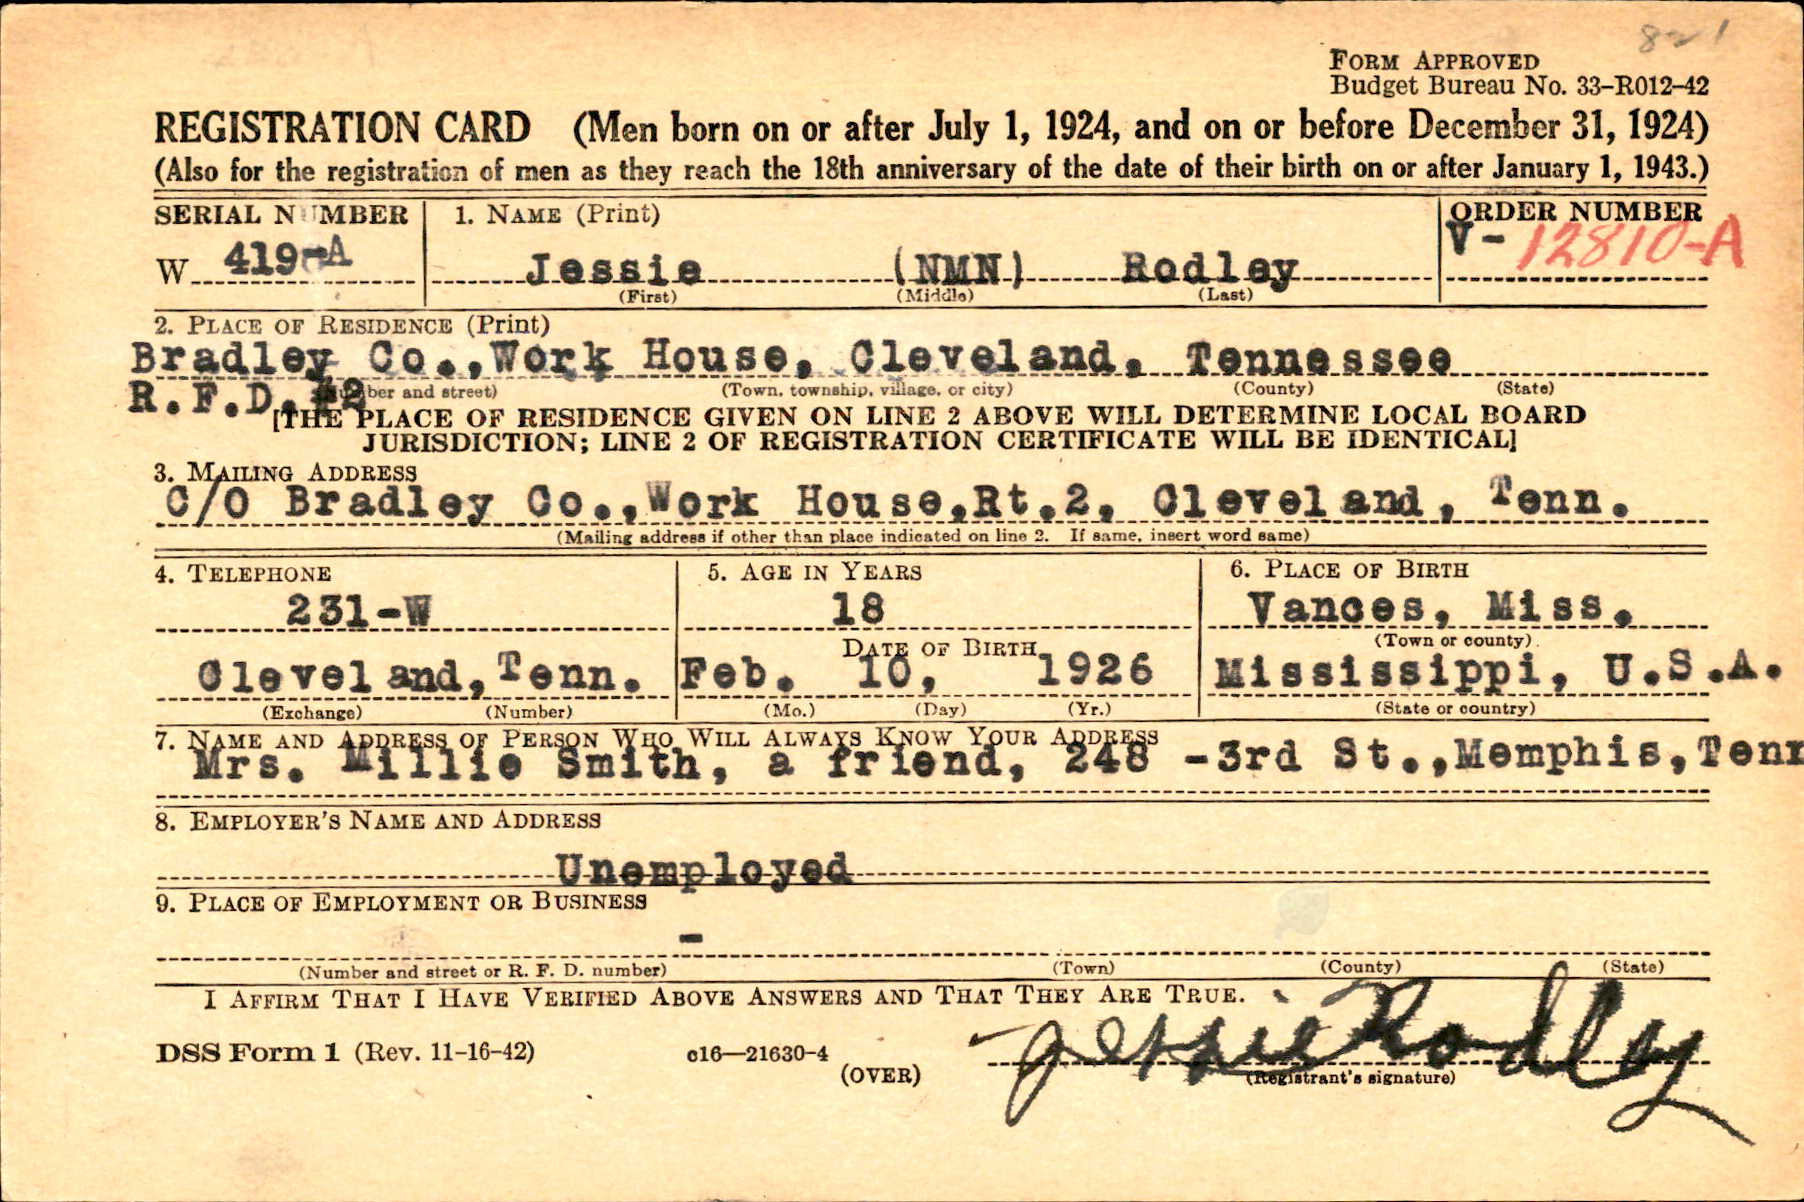 821
FORM APPROVED
Budget Bureau No. 33–R012–42
REGISTRATION CARD (Men born on or after July 1, 1924, and on or before December 31, 1924)
(Also for the registration of men as they reach the 18th anniversary of the date of their birth on or after January 1, 1943.)
SERIAL NUMBER 1. NAME (Print) ORDER NUMBER
W 419-A Jessie (NMN) Rodley V- 12810-A
(First) (Middle) (Last)
2. PLACE OF RESIDENCE (Print)
Bradley Co.,Work House, Cleveland, Tennessee
(Number and street) (Town, township, village, or city) (County) (State)
R.F.D.#2
[THE PLACE OF RESIDENCE GIVEN ON LINE 2 ABOVE WILL DETERMINE LOCAL BOARD
JURISDICTION; LINE 2 OF REGISTRATION CERTIFICATE WILL BE IDENTICAL]
3. MAILING ADDRESS
C/O Bradley Co.,Work House,Rt.2, Cleveland, Tenn.
(Mailing address if other than place indicated on line 2. If same, insert word same)
4. TELEPHONE 5. AGE IN YEARS 6. PLACE OF BIRTH
231-W 18 Vances, Miss.
DATE OF BIRTH (Town or county)
Cleveland,Tenn. Feb. 10, 1926 Mississippi, U.S.A.
(Exchange) (Number) (Mo.) (Day) (Yr.) (State or country)
7. NAME AND ADDRESS OF PERSON WHO WILL ALWAYS KNOW YOUR ADDRESS
Mrs. Millie Smith, a friend, 248 -3rd St.,Memphis,Tenn
8. EMPLOYER'S NAME AND ADDRESS
Unemployed
9. PLACE OF EMPLOYMENT OR BUSINESS
-
(Number and street or R. F. D. number) (Town) (County) (State)
I AFFIRM THAT I HAVE VERIFIED ABOVE ANSWERS AND THAT THEY ARE TRUE.
Jessie Rodley
DSS Form 1 (Rev. 11-16-42) c16—21630-4 (OVER) (Registrant's signature)